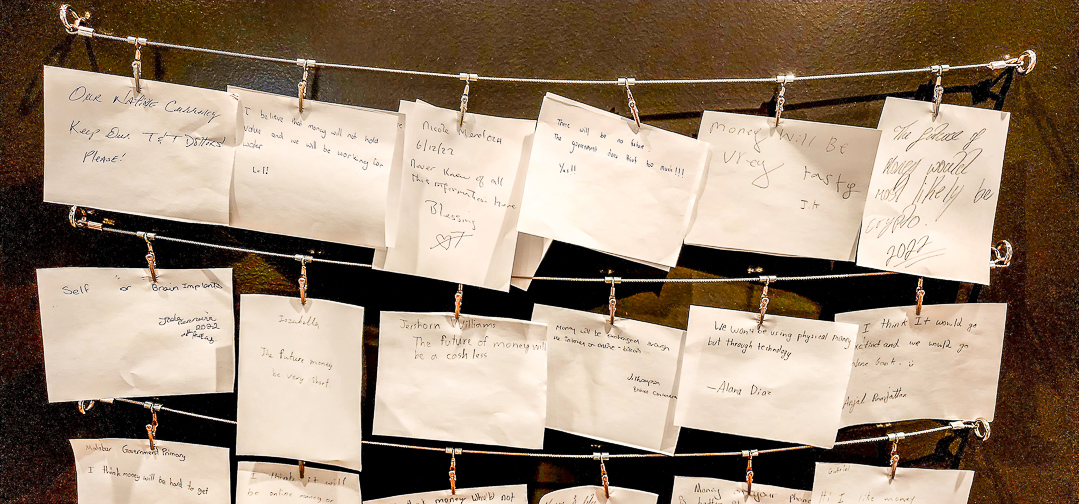 Our Native Currency
Keep Our T&T Dollars
PLEASE!
I believe that money will not hold
value and we will be working for
water
Lol!
Nicole Mendoza
6/12/22
Never knew of all
this information here
Blessing
There will be no future
The government
too much!!!
Yes!!
Money Will BE
vrey
tasty
The future of
Money would
most likely be
crypto.
2022
Self or Brain Implants
2022
Isabella
The future money
be very short
Jershorn Williams
The future of money will
be a cash less
Money will be
through
online - bitcoin
We won't be using physical money
but through technology
—Alana Diaz
I think It would go
extinct and we would go
bank. :)
Malabar Government Primary
I think money will be hard to get
I think it will
be online money or
money would not
Money
phone
Gabriel
Hi I like money